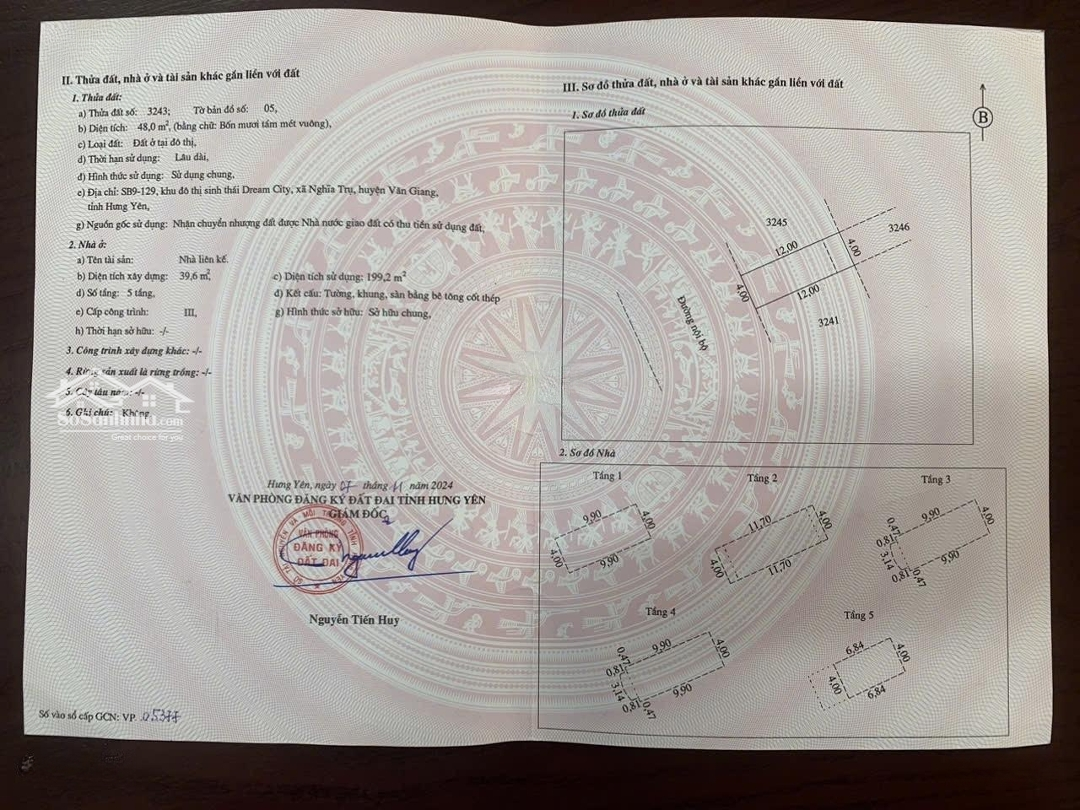 II. Thửa đất, nhà ở và tài sản khác gắn liền với đất
1. Thửa đất:
a) Thửa đất số: 3243; Tờ bản đồ số: 05,
b) Diện tích: 48,0 m², (bằng chữ: Bốn mươi tám mét vuông),
c) Loại đất: Đất ở tại đô thị,
d) Thời hạn sử dụng: Lâu dài,
đ) Hình thức sử dụng: Sử dụng chung,
e) Địa chỉ: SB9-129, khu đô thị sinh thái Dream City, xã Nghĩa Trụ, huyện Văn Giang,
tỉnh Hưng Yên,
g) Nguồn gốc sử dụng: Nhận chuyển nhượng đất được Nhà nước giao đất có thu tiền sử dụng đất,
2. Nhà ở:
a) Tên tài sản: Nhà liên kế.
b) Diện tích xây dựng: 39,6 m², c) Diện tích sử dụng: 199,2 m²
d) Số tầng: 5 tầng, đ) Kết cấu: Tường, khung, sàn bằng bê tông cốt thép
e) Cấp công trình: III, g) Hình thức sở hữu: Sở hữu chung,
h) Thời hạn sở hữu: -/-
3. Công trình xây dựng khác: -/-
4. Rừng sản xuất là rừng trồng: -/-
5. Cây lâu năm: -/-
6. Ghi chú: Không
SoSanhnha.com
Great choice for you
Hưng Yên, ngày 07 tháng 11 năm 2024
VĂN PHÒNG ĐĂNG KÝ ĐẤT ĐAI TỈNH HƯNG YÊN
GIÁM ĐỐC
VĂN PHÒNG
ĐĂNG KÝ
ĐẤT ĐAI
Nguyễn Tiến Huy
Số vào sổ cấp GCN: VP 05377
III. Sơ đồ thửa đất, nhà ở và tài sản khác gắn liền với đất
1. Sơ đồ thửa đất
B
3245
3246
12,00
4,00
4,00
12,00
3241
Đường nội bộ
2. Sơ đồ Nhà
Tầng 1
9,90
4,00
4,00
9,90
Tầng 2
11,70
4,00
4,00
11,70
Tầng 3
9,90
4,00
0,47
0,81
3,14
0,81
0,47
9,90
Tầng 4
9,90
4,00
0,47
0,81
3,14
0,81
0,47
9,90
Tầng 5
6,84
4,00
4,00
6,84